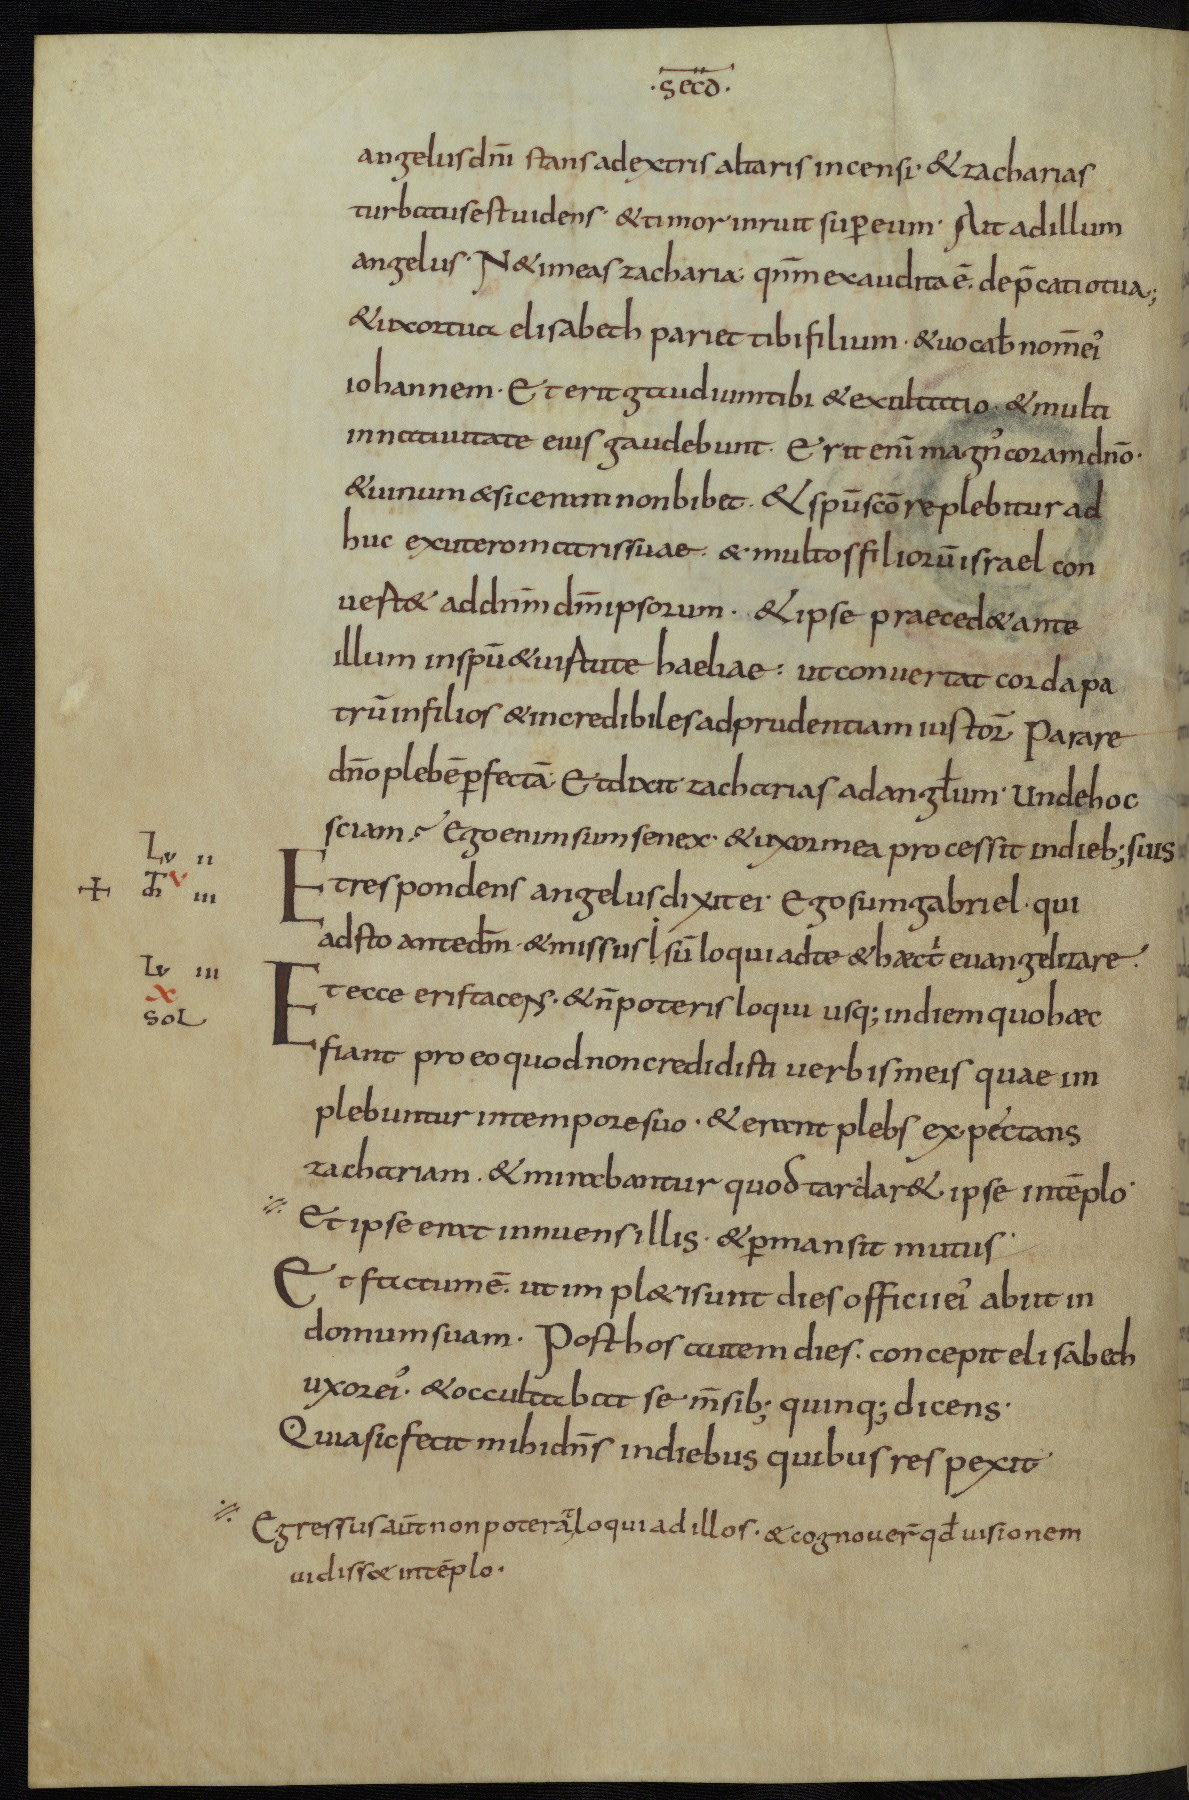 ·secd̅·
angelus dn̅i stans ad extris altaris incensi· & zacharias
turbatus est uidens· & timor inruit sup̱ eum· Ait ad illum
angelus· N& imeas zacharia· qn̅m exaudita ē· dep̄catio tua;
& uxor tua elisabeth pariet tibi filium· & uocab̅ nom̅ ei᾽
iohannem· Et erit gaudium tibi & exultatio· & multi
in natiuitate eius gaudebunt· Erit eni̅ magn᾽ coram dn̅o·
& uinum & siceram non bibet· & spu̅ sc̅o replebitur ad
huc ex utero matris suae· & multos filioru̅ israel con
uert& ad dnm̅ dm̅ ipsorum· & ipse praeced& ante
illum in spu̅ & uirtute haeliae: ut conuertat corda pa
tru̅ in filios & incredibiles ad prudentiam iustor̅ Parare
dn̅o plebe̅ p̱fecta̅· Et dixit zacharias ad angl̅um· Unde hoc
sciam? Ego enim sum senex· & uxor mea processit in dieb; suis
Lu ii
+ v iii
Et respondens angelus dixit ei· Ego sum gabriel· qui
adsto ante dm̅· & missus su̅ loqui ad te & haec t᾽ euangelizare·
Lu iii
x
sol
Et ecce eris tacens· & n̅ poteris loqui usq; in diem quo haec
fiant pro eo quod non credidisti uerbis meis quae im
plebuntur in tempore suo· & erant plebs expectans
zachariam· & mirabantur quod tardar& ipse in te̅plo·
Et ipse erat innuens illis· & p̱mansit mutus·
Et factum ē· ut impl&i sunt dies officii ei᾽ abiit in
domum suam· Post hos autem dies· concepit elisabeth
uxor ei᾽· & occultabat se m̅sib; quinq; dicens·
Quia sic fecit mihi dn̅s in diebus quibus respexit
Egressus aut̅ non poterat loqui ad illos· & cognouer̅ qd̅ uisionem
uidiss& in te̅plo·